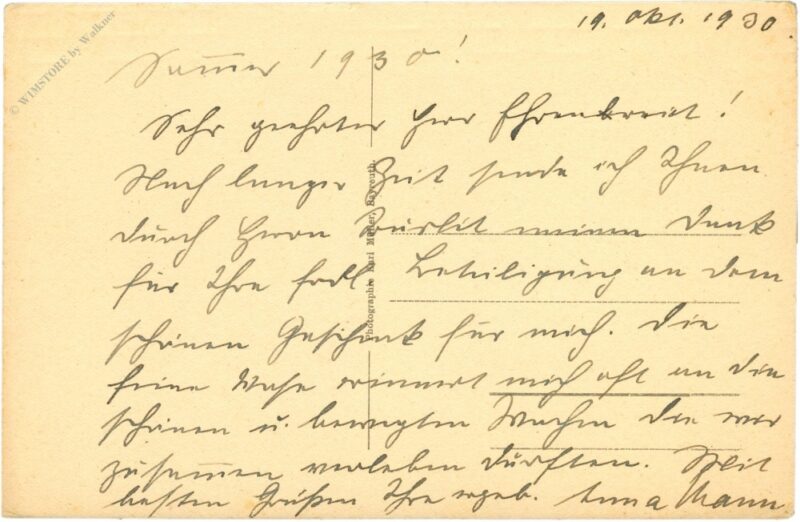 19. Okt. 1930.
Sommer 1930!
Sehr geehrter Herr Ehrenbreit!
Nach langer Zeit sende ich Ihnen
durch Herrn meinen Dank
für Ihre frdl. Beteiligung an dem
schönen Geschenk für mich. Die
feine Vase erinnert mich oft an die
schönen u. bewegten Wochen die wir
zusammen verleben durften. Mit
besten Grüßen Ihre ergeb. Anna Mann
Photographie Karl Müller, Bayreuth.
© WIMSTORE by Walkner